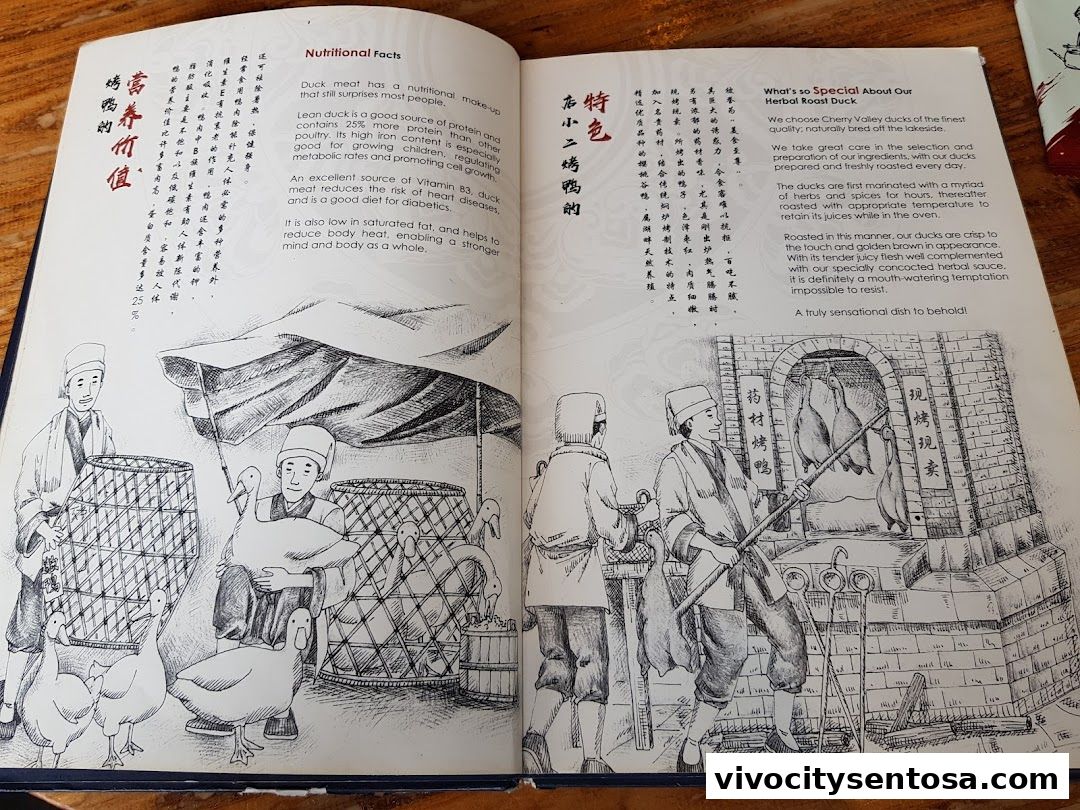 烤鸭的
营养价值
鸭的营养价值比许多畜肉高，蛋白质含量多达25%。
脂肪酸主要是不饱和以及低碳饱和，容易被人体
消化吸收。鸭肉中B族维生素有助人体新陈代谢，
维生素E有抗衰老的作用。鸭肉还含丰富的钾，
经常食用鸭肉除能补充人体必需的多种营养外，
还可祛除暑热，保健强身。
Nutritional Facts
Duck meat has a nutritional make-up
that still surprises most people.
Lean duck is a good source of protein and
contains 25% more protein than other
poultry. Its high iron content is especially
good for growing children, regulating
metabolic rates and promoting cell growth.
An excellent source of Vitamin B3, duck
meat reduces the risk of heart diseases,
and is a good diet for diabetics.
It is also low in saturated fat, and helps to
reduce body heat, enabling a stronger
mind and body as a whole.
店小二烤鸭的
特色
精选优质品种的樱桃谷鸭，属湖畔天然养殖。
加入名贵药材，结合传统焖炉烤制技术的特点，
现烤现卖。所烤出的鸭子，色泽枣红，肉质细嫩，
另有浓郁的药材香味，尤其是刚出炉热气腾腾时，
其巨大的诱惑力，令食客难以抗拒，百吃不腻，
被誉为“美食至尊”。
What's so Special About Our
Herbal Roast Duck
We choose Cherry Valley ducks of the finest
quality; naturally bred off the lakeside.
We take great care in the selection and
preparation of our ingredients, with our ducks
prepared and freshly roasted every day.
The ducks are first marinated with a myriad
of herbs and spices for hours, thereafter
roasted with appropriate temperature to
retain its juices while in the oven.
Roasted in this manner, our ducks are crisp to
the touch and golden brown in appearance.
With its tender juicy flesh well complemented
with our specially concocted herbal sauce,
it is definitely a mouth-watering temptation
impossible to resist.
A truly sensational dish to behold!
药材烤鸭
现烤现卖
vivocitysentosa.com